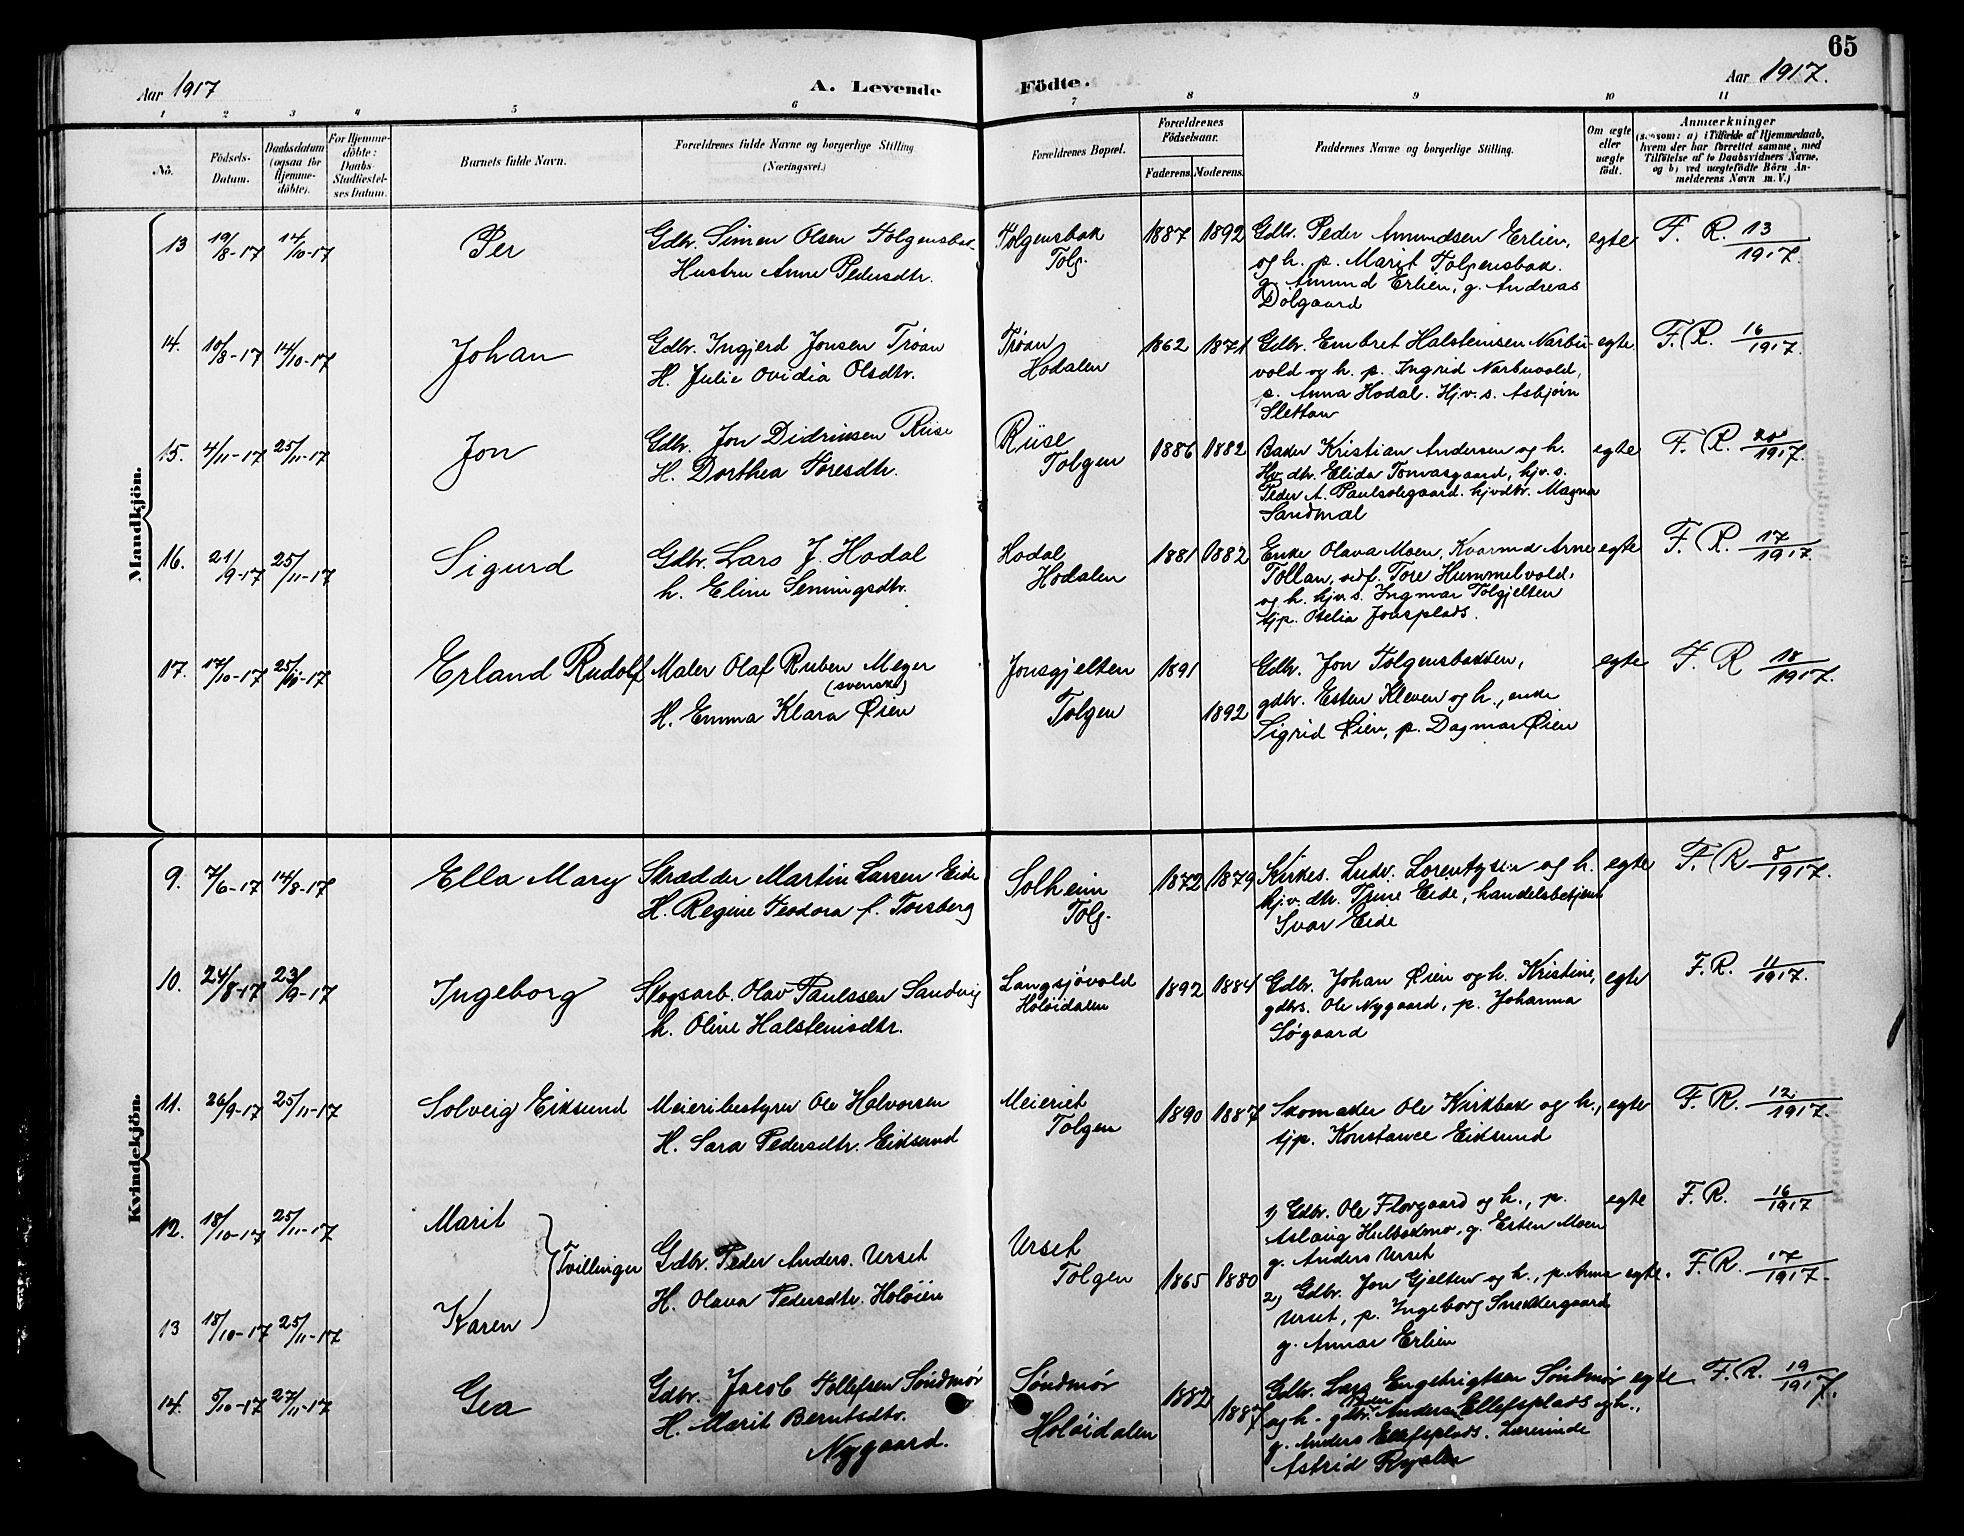 65
Aar 1917
A. Levende
Födte.
Aar 1917.
1 2 3 4 5 6 7 8 9 10 11
No.
Födsels-
Datum.
Daabsdatum
(ogsaa for
Hjemme-
döbte).
For Hjemme-
döbte:
Daabs
Stadfæstel-
ses Datum.
Barnets fulde Navn.
Forældrenes fulde Navne og borgerlige Stilling
(Næringsvei.)
Forældrenes Bopæl.
Forældrenes
Födselsaar.
Faderens. Moderens.
Faddernes Navne og borgerlige Stilling.
Om ægte
eller
uægte
födt.
Anmærkninger
(saasom: a) i Tilfælde af Hjemmedaab,
hvem der har forrettet samme, med
Tilföielse af to Daabsvidners Navne,
og b) ved uægtefödte Börn An-
melderens Navn m. V.)
Mandkjön.
13 19/8-17 14/10-17 Per
Gdbr. Simen Olsen Tolgensbak
Hustru Anne Pedersdtr.
Tolgensbak
Tolg.
1887 1892
Gdbr. Peder Amundsen Erlien,
og h. p. Marit Tolgensbak.
g. Amund Erlien, g. Andreas
Dölgaard
egte F. R. 13/1917.
14. 10/8-17 14/10-17 Johan
Gdbr. Ingjerd Jonsen Trøan
H. Julie Ovidia Olsdtr.
Trøan
Hodalen
1862 1871
Gdbr. Embret Halsteinsen Narbu-
vold og h. p. Ingrid Narbuvold,
p. Anna Hodal. Hj.v.s. Asbjørn
Slettan
egte F. R. 16/1917.
15. 4/11-17 25/11-17 Jon
Gdbr. Jon Didriksen Riise
H. Dorthea Toresdtr.
Riise
Tolgen
1886 1882
Baker Kristian Andersen og h.
Hv. dtr. Elida Tomasgaard, hjv. s.
Peder A. Paulsølegaard. hjvdtr. Magna
Sandmæl
egte F. R. 20/1917.
16. 21/9-17 25/11-17 Sigurd
Gdbr. Lars J. Hodal
h. Eline Semingsdtr.
Hodal
Hodalen
1881 1882
Enke Olava Moen, Kvarnd Arne
Tollan, sedf. Tore Hummelvold,
og h. hjv. s. Ingmar Tolgjelten
tjp. Otelia Jonsplads.
egte F. R. 17/1917.
17. 17/10-17 25/11-17 Erland Rudolf
Maler Olaf Ruben Meyer
(svenske)
H. Emma Klara Øien
Jonsgjelten
Tolgen
1891
1892
Gdbr. Jon Tolgensbakken,
gdbr. Esten Kleven og h., enke
Sigrid Øien, p. Dagmar Øien
egte F. R 18/1917.
Kvindekjön.
9. 7/6-17 14/8-17 Ella Mary
Skrædder Martin Larsen Eide
H. Regine Teodora f. Torsberg
Solheim
Tolg.
1872 1879
Kirkes. Ludv. Lorentzsen og h.
hj.v. dtr. Trine Eide, handelsbetjent
Ivar Eide
egte F. R 8/1917.
10. 24/8-17 23/9-17 Ingeborg
Skogsarb. Olav Paulssen Sandvig
h. Oline Halsteinsdtr.
Langsjøvold
Holøidalen
1892 1884
Gdbr. Johan Øien og h. Kristine,
gdbrs. Ole Nygaard, p. Johanna
Søgaard
egte F. R. 11/1917.
11. 26/9-17 25/11-17 Solveig Eiksund
Meieribestyrer Ole Halvorsen
H. Sara Pedersdtr. Eiksund
Meieriet
Tolgen
1890 1887
Skomaker Ole Kirkbak og h.,
tjp. Konstance Eiksund
egte F. R. 12/1917.
12. 18/10-17 25/11-17 Marit
Tvillinger
Gdbr. Peder Anders. Urset
H. Olava Pedersdtr. Holøien
Urset
Tolgen
1865 1880
1) Gdbr. Ole Florgaard og h., p.
Aslaug Hulbækmo, g. Esten Moen
g. Anders Urset
egte F. R. 16/1917
13 18/10-17 25/11-17 Karen
2) Gdbr. Jon Gjelten og h., p. Anna
Urset, p. Ingeborg Sneddergaard
g. Annar Erlien
egte. F. R. 17/1917.
14. 5/10-17 27/11-17 Gea
Gdbr. Jacob Tollefsen Søndmør
H. Marit Berntsdtr.
Nygaard.
Søndmør
Holøidalen
1882
1887
Gdbr. Lars Engebrigtsen Søndmør
og h. gdbr. Anders Ellefsplads og h.,
g. Anders Ellefsplads. Lærerinde
Astrid
egte F. R. 19/1917.